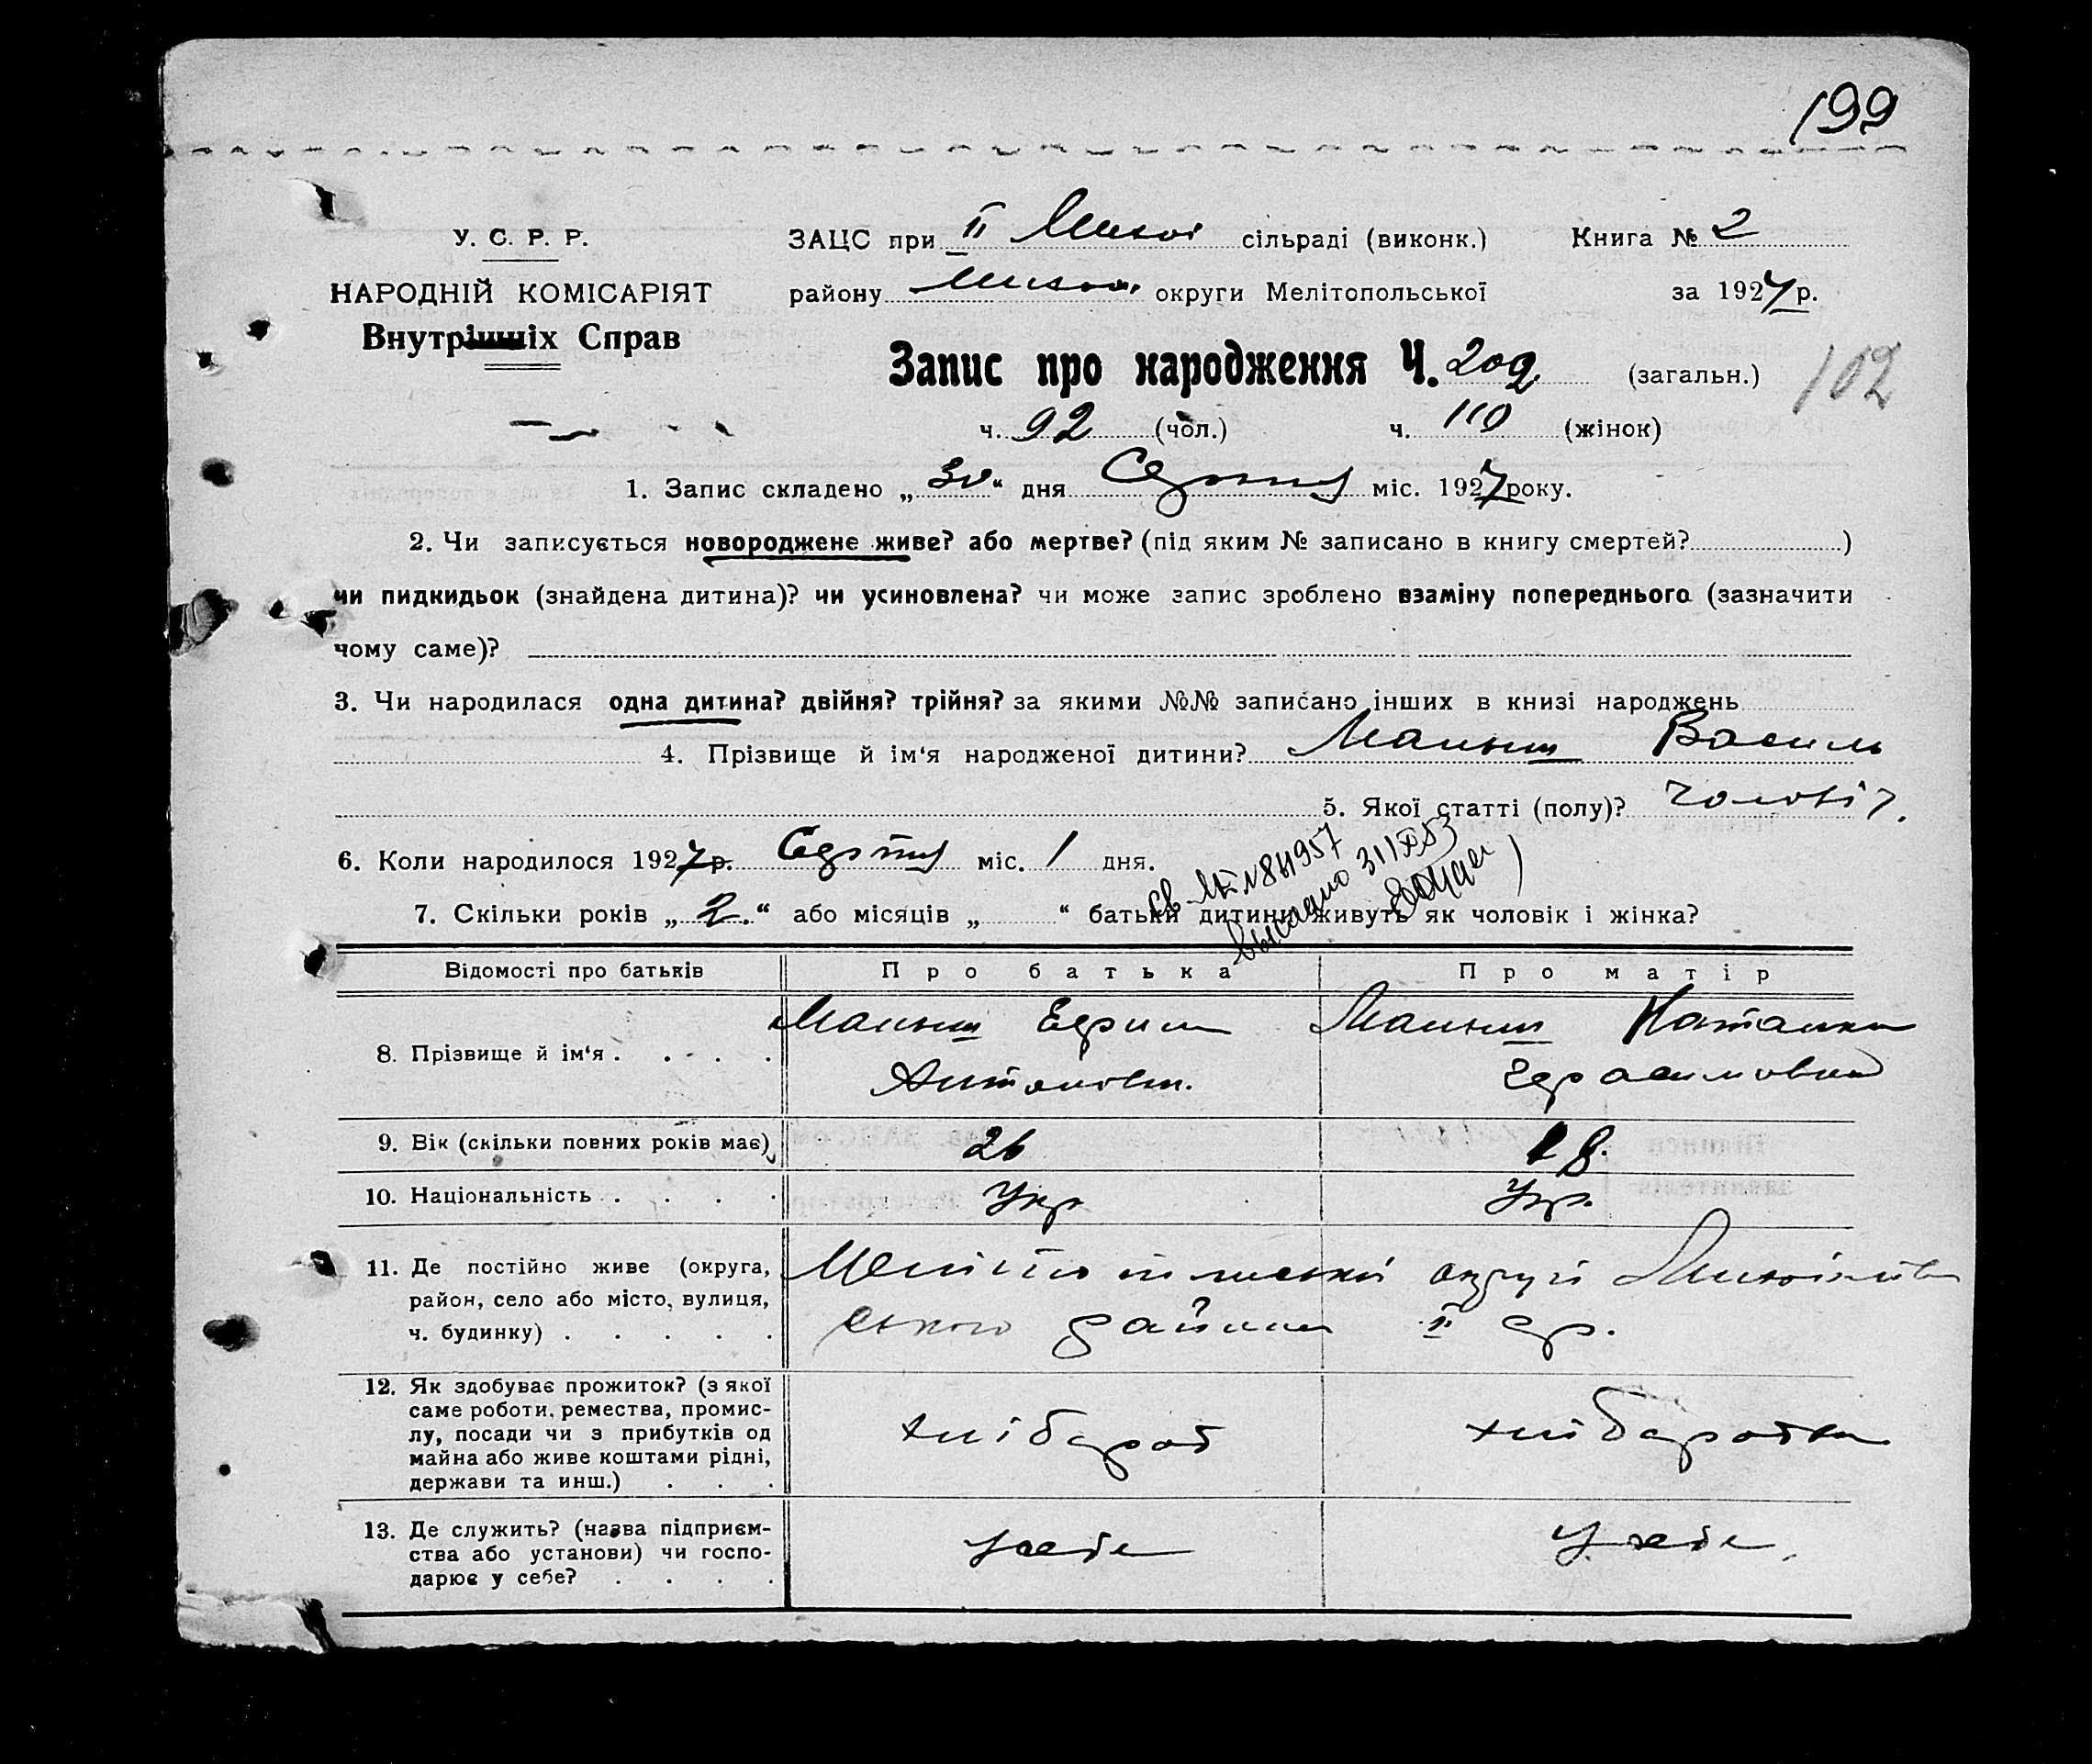 199
У. С. Р. Р.
НАРОДНІЙ КОМІСАРІЯТ
Внутрішніх Справ
ЗАЦС при II сільраді (виконк.) Книга № 2
району округи Мелітопольської за 1927 р.
Запис про народження Ч. 202 (загальн.) 102
ч. 92 (чол.) ч. 110 (жінок)
1. Запис складено „ 30 “ дня Серпня міс. 1927 року.
2. Чи записується новороджене живе? або мертве? (під яким № записано в книгу смертей? )
чи пидкидьок (знайдена дитина)? чи усиновлена? чи може запис зроблено взаміну попереднього (зазначити
чому саме)?
3. Чи народилася одна дитина? двійня? трійня? за якими №№ записано інших в книзі народжень
4. Прізвище й ім‘я народженої дитини? Василь
5. Якої статті (полу)? чоловіч.
6. Коли народилося 1927 р. Серпня міс. 1 дня.
7. Скільки років „ 2. “ або місяців „ “ батьки дитини живуть як чоловік і жінка?
Відомості про батьків Про батька Про матір
8. Прізвище й ім‘я . . . .
9. Вік (скільки повних років має) 26 18.
10. Національність . . . . Укр Укр.
11. Де постійно живе (округа,
район, село або місто, вулиця,
ч. будинку) . . . . .
Мелітопольської округи
ського району II
12. Як здобуває прожиток? (з якої
саме роботи, ремества, промис-
лу, посади чи з прибутків од
майна або живе коштами рідні,
держави та инш.) . . .
хлібороб хліборобка
13. Де служить? (назва підприєм-
ства або установи) чи госпо-
дарює у себе? . . . .
у себе у себе.